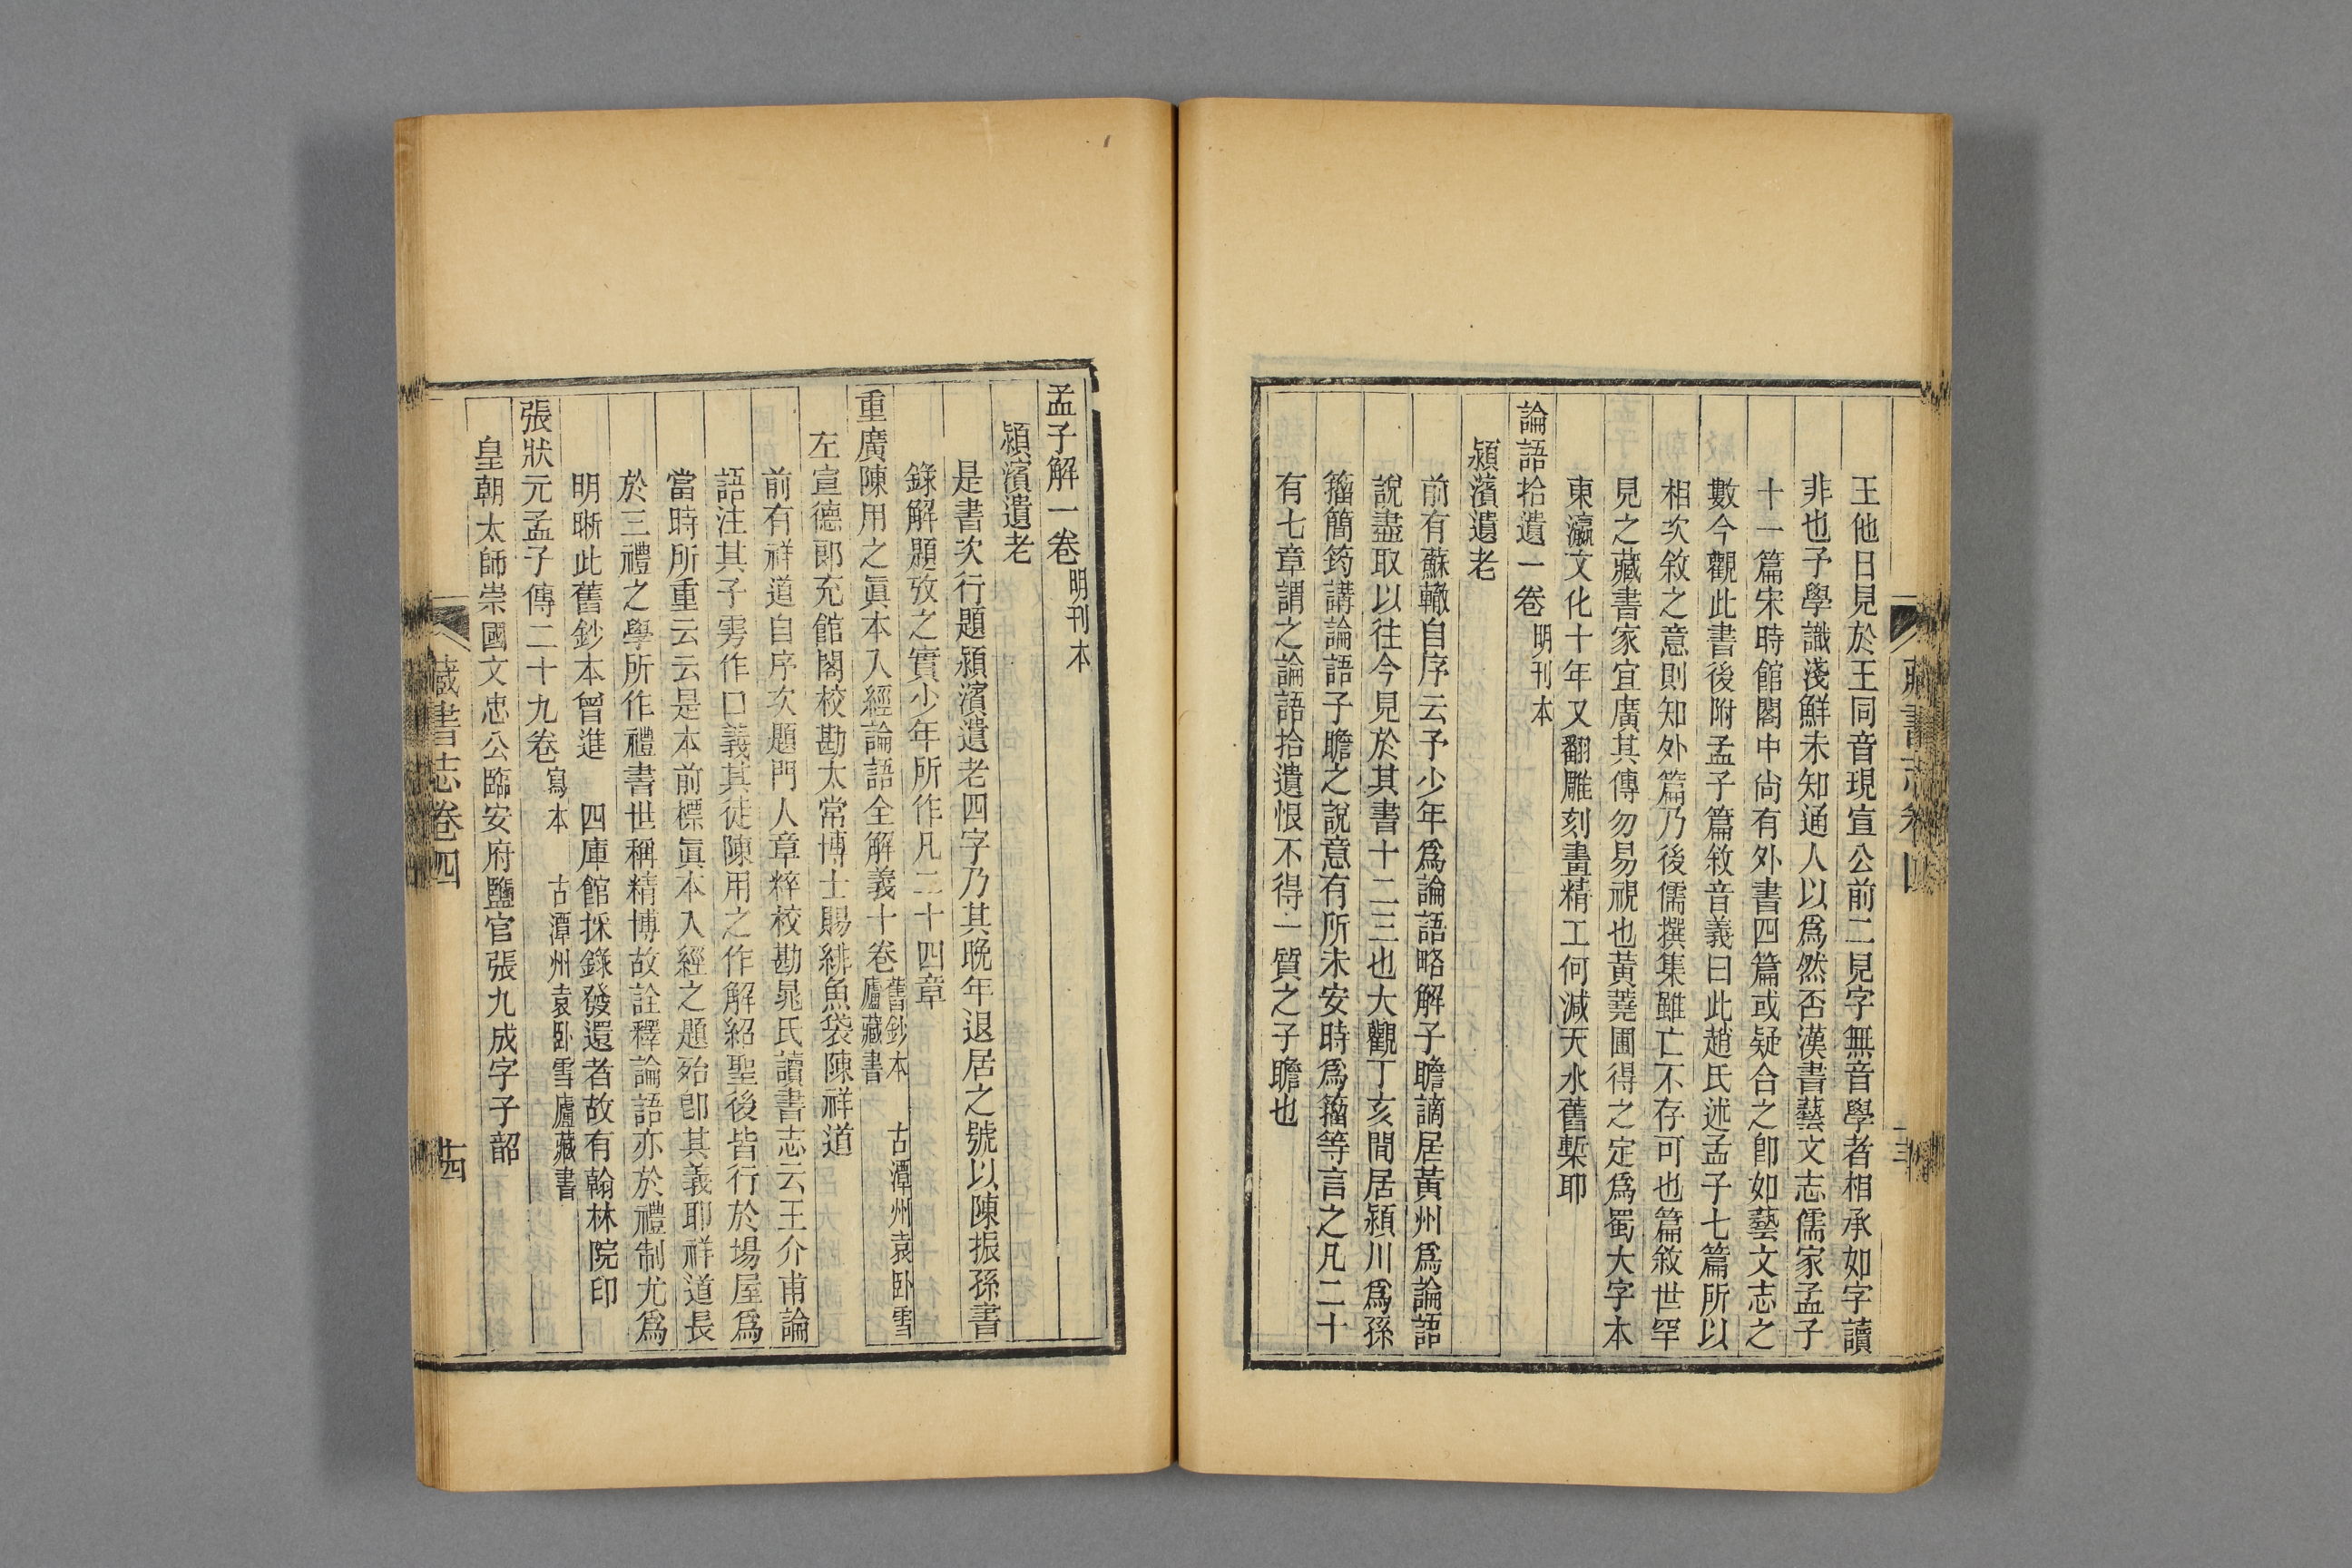 王他日見於王同音現宣公前二見字無音學者相承如字讀
非也予學識淺鮮未知通人以爲然否漢書藝文志儒家孟子
十一篇宋時館閣中尙有外書四篇或疑合之卽如藝文志之
數今觀此書後附孟子篇敘音義曰此趙氏述孟子七篇所以
相次敘之意則知外篇乃後儒撰集雖亡不存可也篇敘世罕
見之藏書家宜廣其傳勿易視也黃蕘圃得之定爲蜀大字本
東瀛文化十年又翻雕刻畫精工何減天水舊槧耶
論語拾遺一卷 明刊本
潁濱遺老
前有蘇轍自序云予少年爲論語略解子瞻謫居黃州爲論語
說盡取以往今見於其書十二三也大觀丁亥閒居潁川爲孫
籀簡筠講論語子瞻之說意有所未安時爲籀等言之凡二十
有七章謂之論語拾遺恨不得一質之子瞻也
孟子解一卷 明刊本
潁濱遺老
是書次行題潁濱遺老四字乃其晚年退居之號以陳振孫書
錄解題攷之實少年所作凡二十四章
重廣陳用之眞本入經論語全解義十卷 舊鈔本 古潭州袁臥雪廬藏書
左宣德郎充館閣校勘太常博士賜緋魚袋陳祥道
前有祥道自序次題門人章粹校勘晁氏讀書志云王介甫論
語注其子雱作口義其徒陳用之作解紹聖後皆行於場屋爲
當時所重云云是本前標眞本入經之題殆卽其義耶祥道長
於三禮之學所作禮書世稱精博故詮釋論語亦於禮制尤爲
明晰此舊鈔本曾進 四庫館採錄發還者故有翰林院印
張狀元孟子傳二十九卷 寫本 古潭州袁臥雪廬藏書
皇朝太師崇國文忠公臨安府鹽官張九成字子韶
藏書志卷四
十四